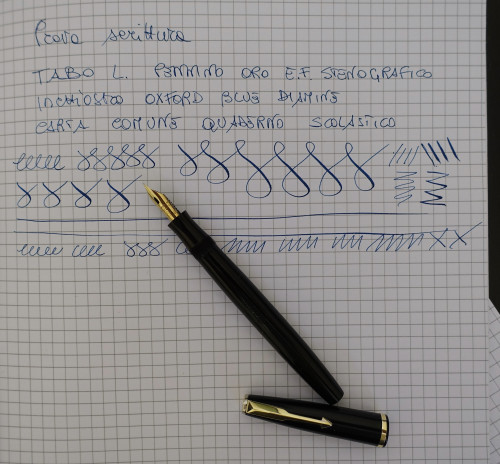 Prova scrittura
TABO L. PENNINO ORO E.F. STENOGRAFICO
INCHIOSTRO OXFORD BLUE DIAMINE
CARTA COMUNE QUADERNO SCOLASTICO